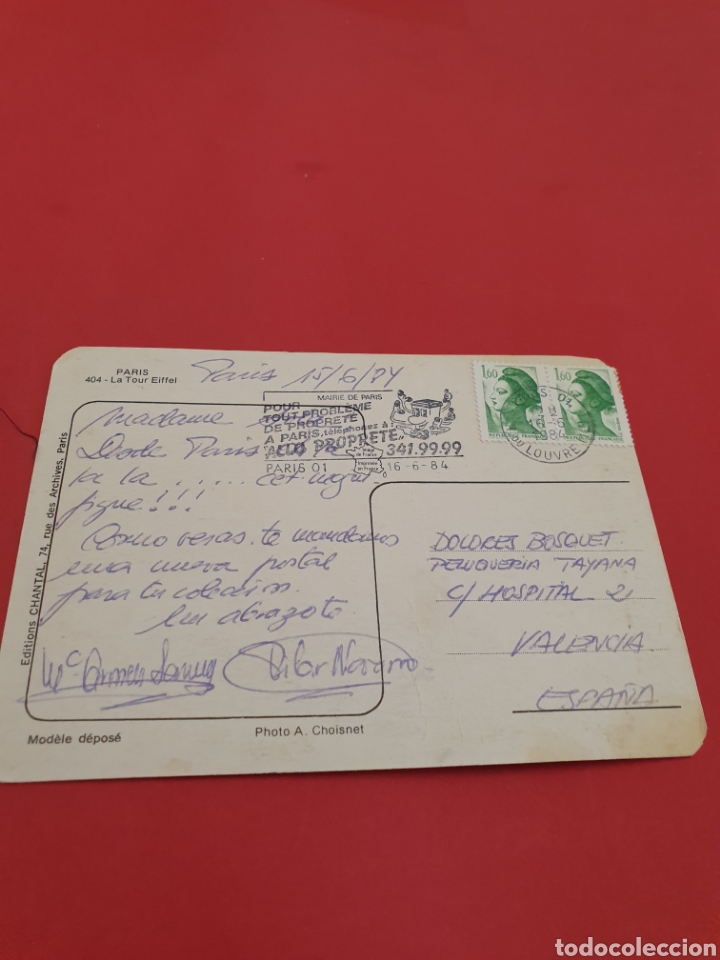 PARIS
404 - La Tour Eiffel
Paris 15/6/84
Madame
Desde Paris
la la ..... cet magni
fique!!!
Como veras te mandamos
una nueva postal
para tu colección.
Un abrazote
Mª Carmen
Pilar Navarro
MAIRIE DE PARIS
POUR
TOUT PROBLEME
DE PROPRETE
A PARIS, téléphonez à :
"ALLO PROPRETE" 341.99.99
Image de France
Imprimé en France
PARIS 01 16-6-84
1,60 1,60
DU LOUVRE
DOLORES BOSQUET
PELUQUERIA TAYANA
C/ HOSPITAL 2
VALENCIA
ESPAÑA
Editions CHANTAL, 74, rue des Archives, Paris
Modèle déposé
Photo A. Choisnet
todocoleccion